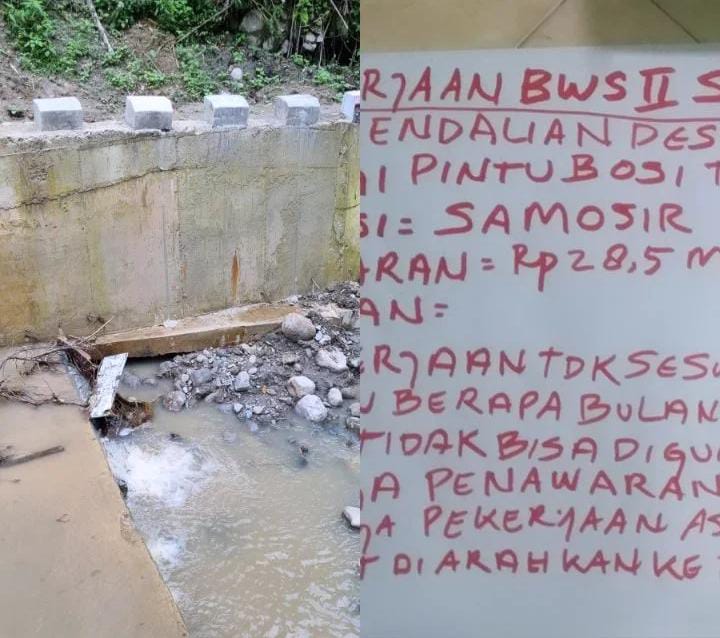 RJAAN BWS II S
ENDALIAN DES
I PINTUBOSI T
SI = SAMOSIR
RAN = Rp 28,5 M
AN =
RJAAN TDK SESU
BERAPA BULAN
TIDAK BISA DIGU
A PENAWARAN
GA PEKERJAAN AS
T DIARAHKAN KE